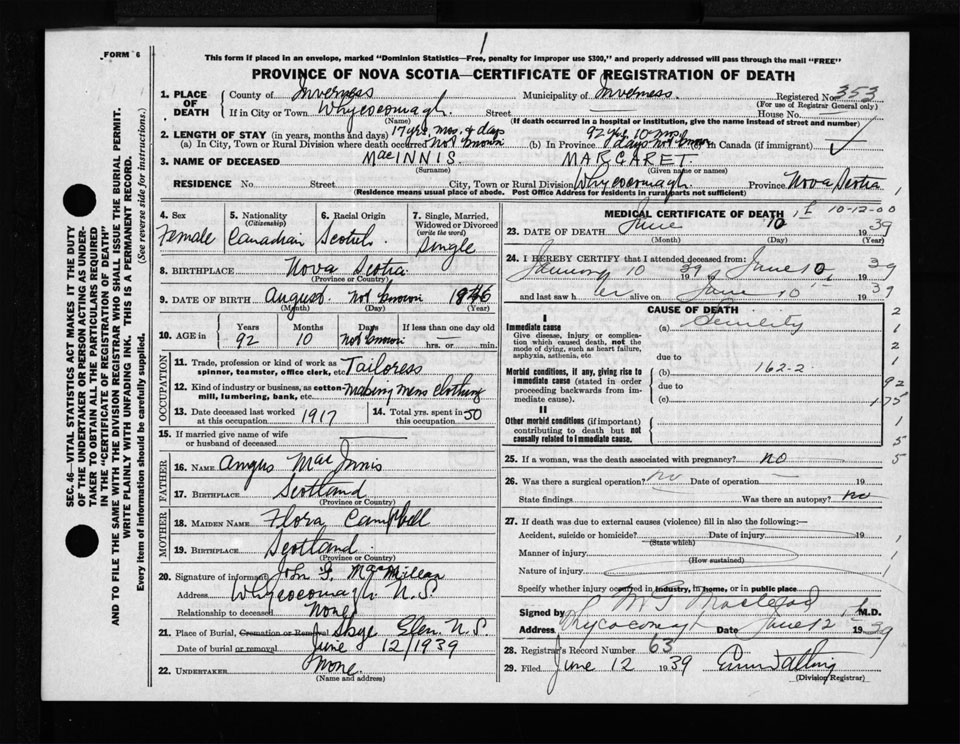 1
FORM 6
This form if placed in an envelope, marked "Dominion Statistics—Free, penalty for improper use $300," and properly addressed will pass through the mail "FREE"
PROVINCE OF NOVA SCOTIA—CERTIFICATE OF REGISTRATION OF DEATH
1. PLACE OF DEATH County of Inverness Municipality of Inverness Registered No. 353
(For use of Registrar General only)
If in City or Town Whycocomagh Street House No.
(Name) (If death occurred in a hospital or institution, give the name instead of street and number)
2. LENGTH OF STAY (in years, months and days) 17 yrs. mos. & days 92 yrs 10 mos
(a) In City, Town or Rural Division where death occurred not known (b) In Province days not known in Canada (if immigrant)
3. NAME OF DECEASED MacINNIS MARGARET
(Surname) (Given name or names)
RESIDENCE No. Street City, Town or Rural Division Whycocomagh Province Nova Scotia
(Residence means usual place of abode. Post Office Address for residents in rural parts not sufficient)
4. Sex Female
5. Nationality (Citizenship) Canadian
6. Racial Origin Scotch
7. Single, Married, Widowed or Divorced (write the word) Single
8. BIRTHPLACE Nova Scotia
(Province or Country)
9. DATE OF BIRTH August Not known 1846
(Month) (Day) (Year)
10. AGE in Years 92 Months 10 Days Not known If less than one day hrs. or min.
OCCUPATION
11. Trade, profession or kind of work as spinner, teamster, office clerk, etc. Tailoress
12. Kind of industry or business, as cotton mill, lumbering, bank, etc. making mens clothing
13. Date deceased last worked at this occupation 1917 14. Total yrs. spent in this occupation 50
15. If married give name of wife or husband of deceased
FATHER
16. NAME Angus Mac Innis
17. BIRTHPLACE Scotland
(Province or Country)
MOTHER
18. MAIDEN NAME Flora Campbell
19. BIRTHPLACE Scotland
(Province or Country)
20. Signature of informant John G. MacMillan
Address Whycocomagh N.S.
Relationship to deceased None
21. Place of Burial, Cremation or Removal Skye Glen. N.S.
Date of burial or removal June 12/1939
22. UNDERTAKER None
(Name and address)
MEDICAL CERTIFICATE OF DEATH 10-12-00
23. DATE OF DEATH June 10 1939
(Month) (Day) (Year)
24. I HEREBY CERTIFY that I attended deceased from:
January 10 1939 to June 10 1939
and last saw her alive on June 10 1939
CAUSE OF DEATH
I
Immediate cause (a) Senility
Give disease, injury or complication which caused death, not the mode of dying, such as heart failure, asphyxia, asthenia, etc
due to
Morbid conditions, if any, giving rise to immediate cause (stated in order proceeding backwards from immediate cause). (b) 162-2
due to
(c)
II
Other morbid conditions (if important) contributing to death but not causally related to immediate cause.
2
1
2
1
92
175
1
5
5
25. If a woman, was the death associated with pregnancy? no
26. Was there a surgical operation? no Date of operation 19
State findings Was there an autopsy? no
27. If death was due to external causes (violence) fill in also the following:—
Accident, suicide or homicide? Date of injury 19
(State which)
Manner of injury
(How sustained)
Nature of injury
Specify whether injury occurred in industry, in home, or in public place
Signed by Macleod M.D.
Address Date June 12 1939
28. Registrar's Record Number 63
29. Filed June 12 1939
(Division Registrar)
SEC. 46—VITAL STATISTICS ACT MAKES IT THE DUTY OF THE UNDERTAKER OR PERSON ACTING AS UNDERTAKER TO OBTAIN ALL THE PARTICULARS REQUIRED IN THE "CERTIFICATE OF REGISTRATION OF DEATH"
AND TO FILE THE SAME WITH THE DIVISION REGISTRAR WHO SHALL ISSUE THE BURIAL PERMIT.
WRITE PLAINLY WITH UNFADING INK. THIS IS A PERMANENT RECORD.
Every item of information should be carefully supplied. (See reverse side for instructions.)